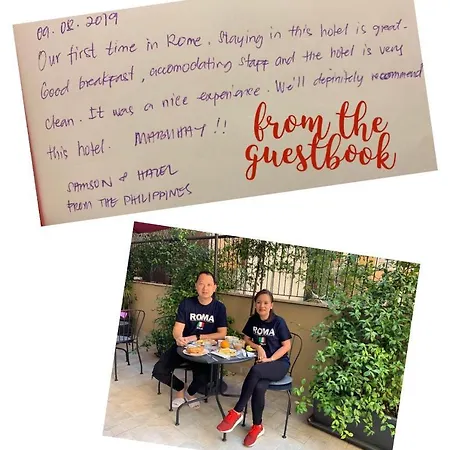 09.08.2019
Our first time in Rome. Staying in this hotel is great.
Good breakfast, accomodating staff and the hotel is very
clean. It was a nice experience. We'll definitely recommend
this hotel. MABUHAY!!
from the
guestbook
SAMSON & HAZEL
FROM THE PHILIPPINES
ROMA
ROMA